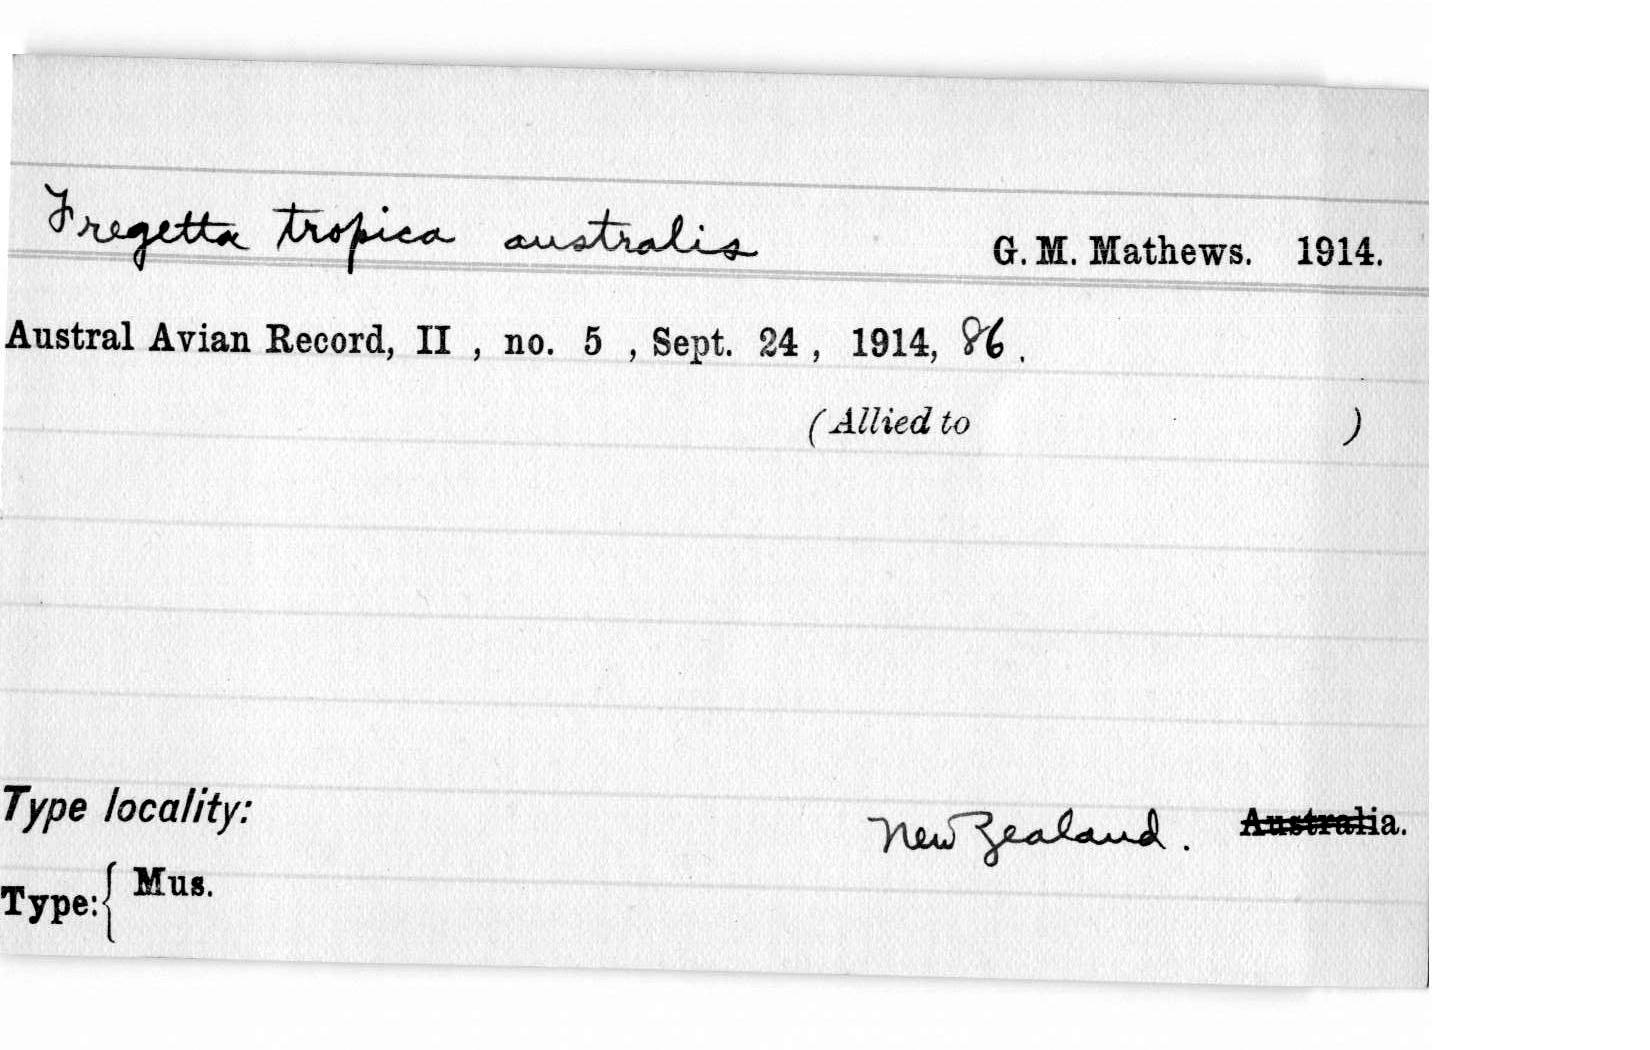 Fregetta tropica australis G. M. Mathews. 1914.
Austral Avian Record, II , no. 5 , Sept. 24 , 1914, 86 .
(Allied to )
Type locality: New Zealand . Australia.
Type: { Mus.